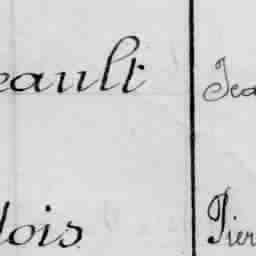 eault Jea
lois Pier